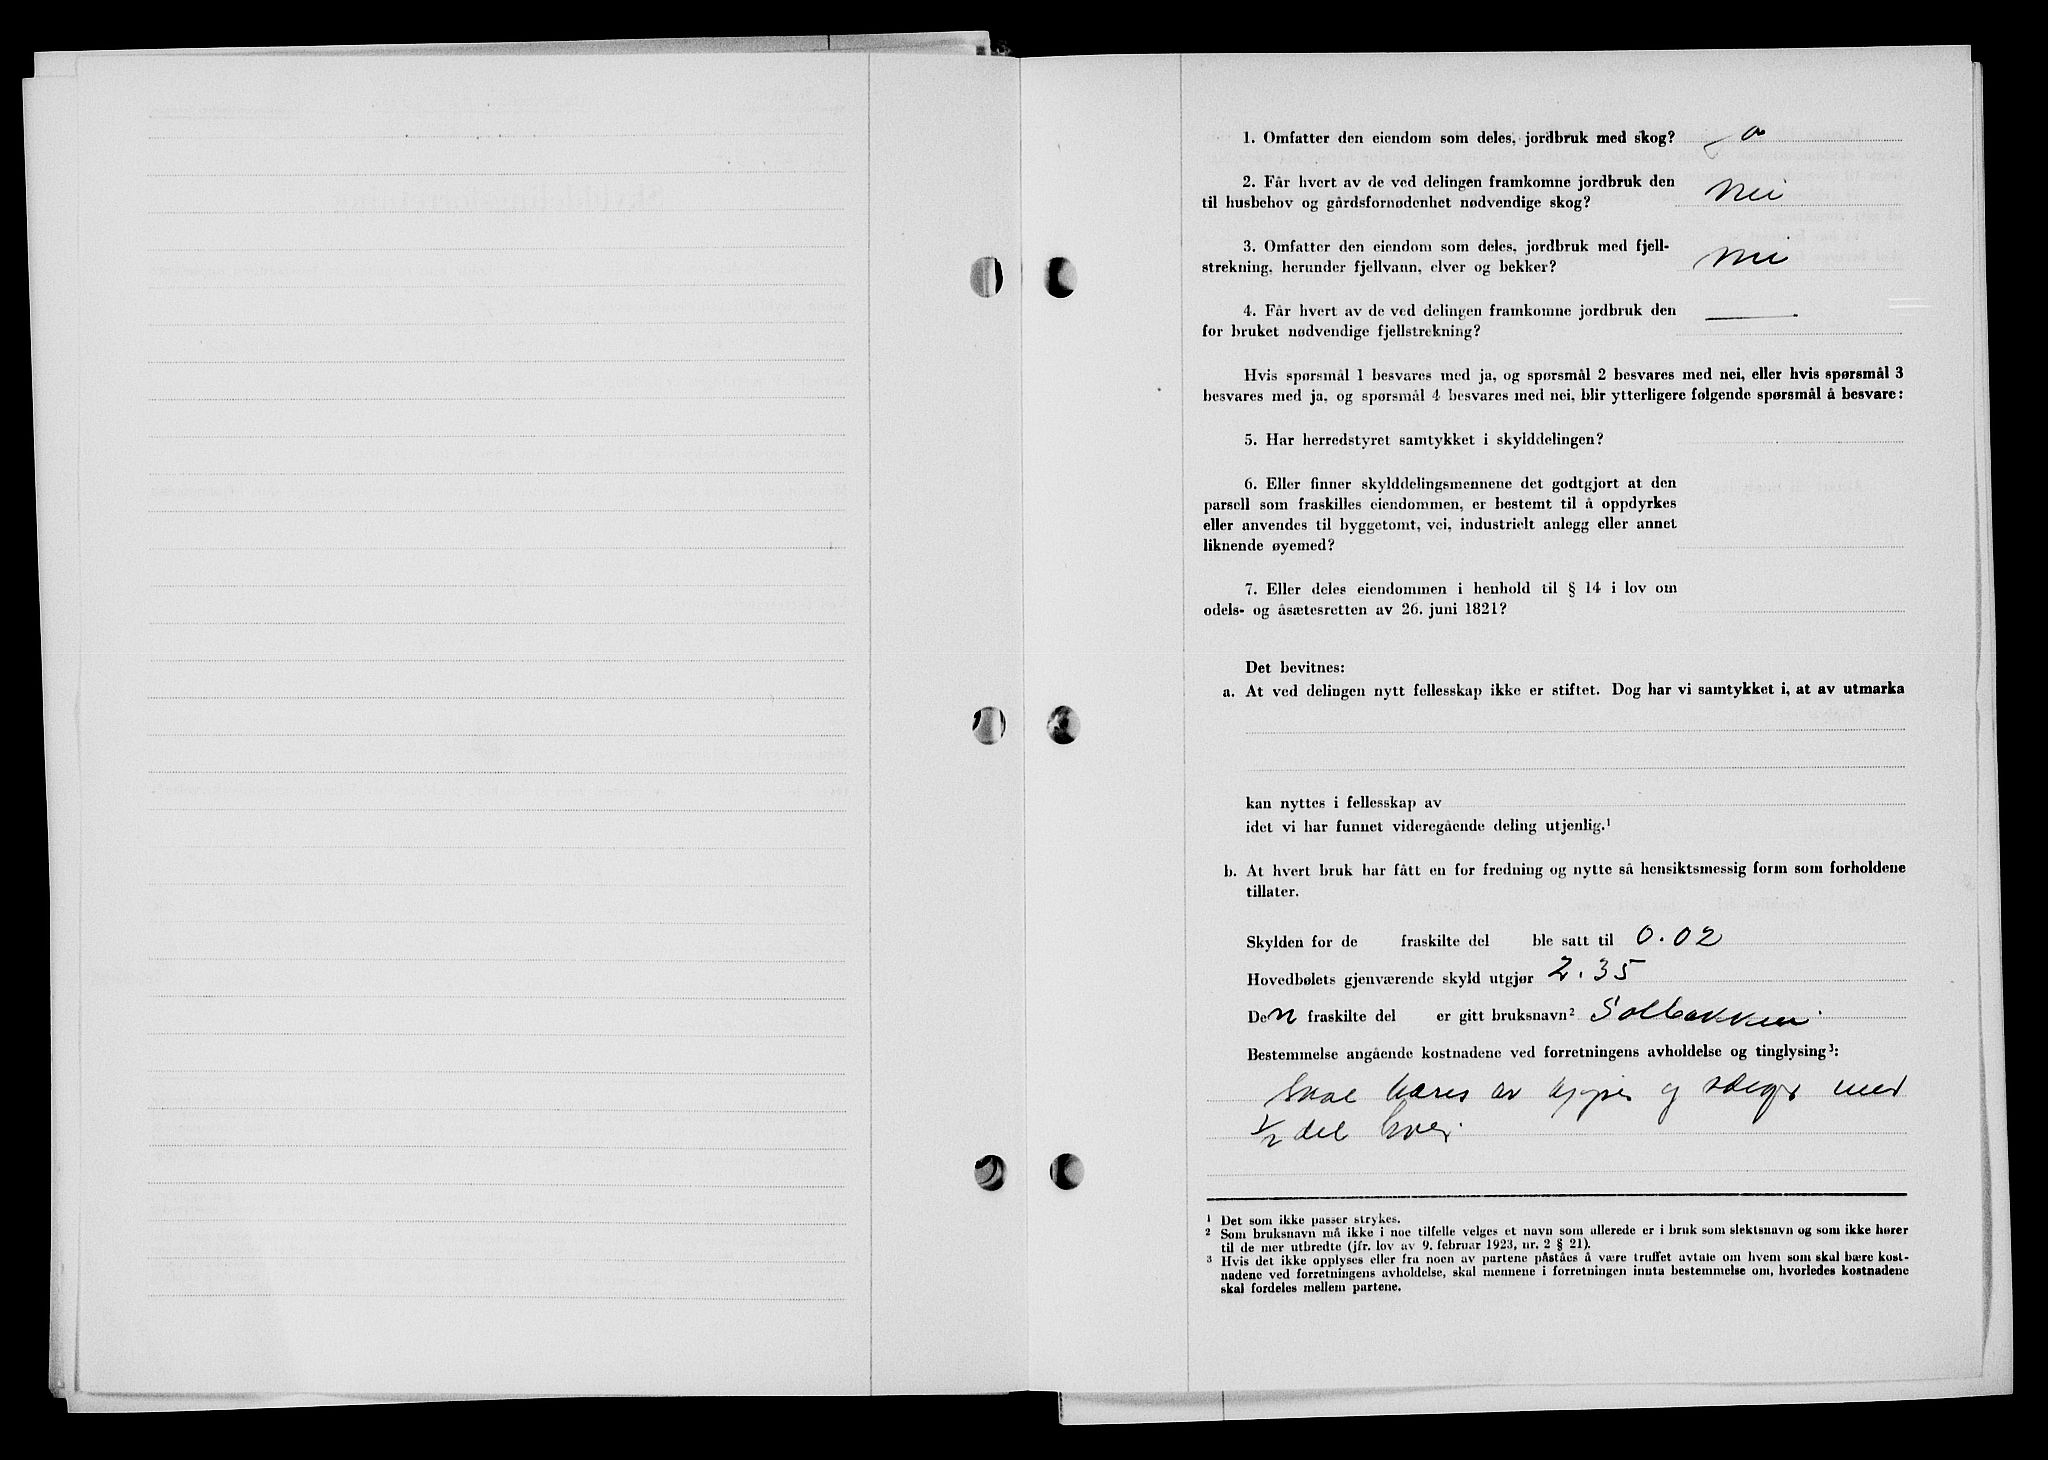 1. Omfatter den eiendom som deles, jordbruk med skog? Ja
2. Får hvert av de ved delingen framkomne jordbruk den
til husbehov og gårdsfornødenhet nødvendige skog? Nei
3. Omfatter den eiendom som deles, jordbruk med fjell-
strekning, herunder fjellvann, elver og bekker? Nei
4. Får hvert av de ved delingen framkomne jordbruk den
for bruket nødvendige fjellstrekning? —
Hvis spørsmål 1 besvares med ja, og spørsmål 2 besvares med nei, eller hvis spørsmål 3
besvares med ja, og spørsmål 4 besvares med nei, blir ytterligere følgende spørsmål å besvare:
5. Har herredstyret samtykket i skylddelingen?
6. Eller finner skylddelingsmennene det godtgjort at den
parsell som fraskilles eiendommen, er bestemt til å oppdyrkes
eller anvendes til byggetomt, vei, industrielt anlegg eller annet
liknende øyemed?
7. Eller deles eiendommen i henhold til § 14 i lov om
odels- og åsætesretten av 26. juni 1821?
Det bevitnes:
a. At ved delingen nytt fellesskap ikke er stiftet. Dog har vi samtykket i, at av utmarka
kan nyttes i fellesskap av
idet vi har funnet videregående deling utjenlig.¹
b. At hvert bruk har fått en for fredning og nytte så hensiktsmessig form som forholdene
tillater.
Skylden for de fraskilte del ble satt til 0.02
Hovedbølets gjenværende skyld utgjør 2.35
Den fraskilte del er gitt bruksnavn² Solbakken.
Bestemmelse angående kostnadene ved forretningens avholdelse og tinglysing³:
Skal bæres av kjøper og selger med
1/2 del hver.
¹ Det som ikke passer strykes.
² Som bruksnavn må ikke i noe tilfelle velges et navn som allerede er i bruk som slektsnavn og som ikke hører
til de mer utbredte (jfr. lov av 9. februar 1923, nr. 2 § 21).
³ Hvis det ikke opplyses eller fra noen av partene påståes å være truffet avtale om hvem som skal bære kost-
nadene ved forretningens avholdelse, skal mennene i forretningen innta bestemmelse om, hvorledes kostnadene
skal fordeles mellem partene.